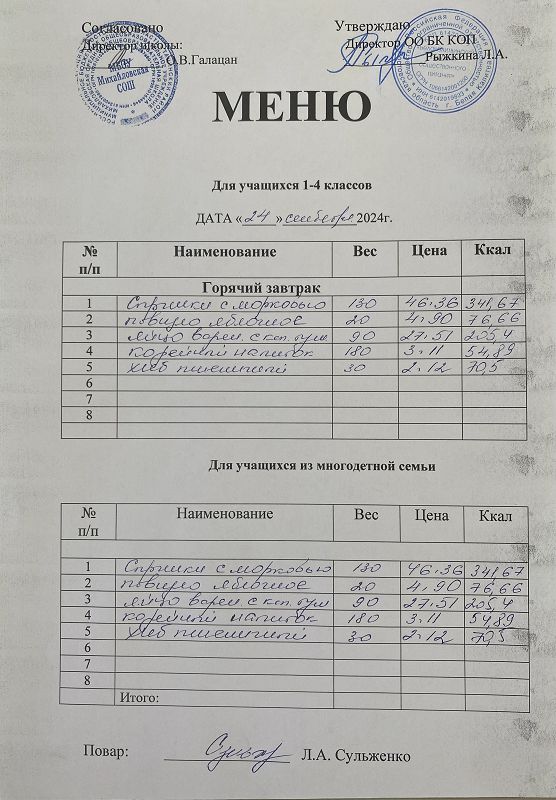 Согласовано Утверждаю
Директор школы: Директор ОО БК КОП
О.В.Галацан Рыжкина Л.А.
МБОУ Михайловская СОШ
МЕНЮ
Для учащихся 1-4 классов
ДАТА «24» сентября 2024г.
№ п/п Наименование Вес Цена Ккал
Горячий завтрак
1 130 46.36 341,67
2 повидло яблочное 20 4.90 76,66
3 яйцо варен. с 90 27.51 205,4
4 кофейный напиток 180 3.11 54,89
5 хлеб пшеничный 30 2.12 70,5
6
7
8
Для учащихся из многодетной семьи
№ п/п Наименование Вес Цена Ккал
1 130 46.36 341,67
2 повидло яблочное 20 4.90 76,66
3 яйцо варен. с 90 27.51 205,4
4 кофейный напиток 180 3.11 54,89
5 хлеб пшеничный 30 2.12 70,5
6
7
8
Итого:
Повар: Л.А. Сульженко